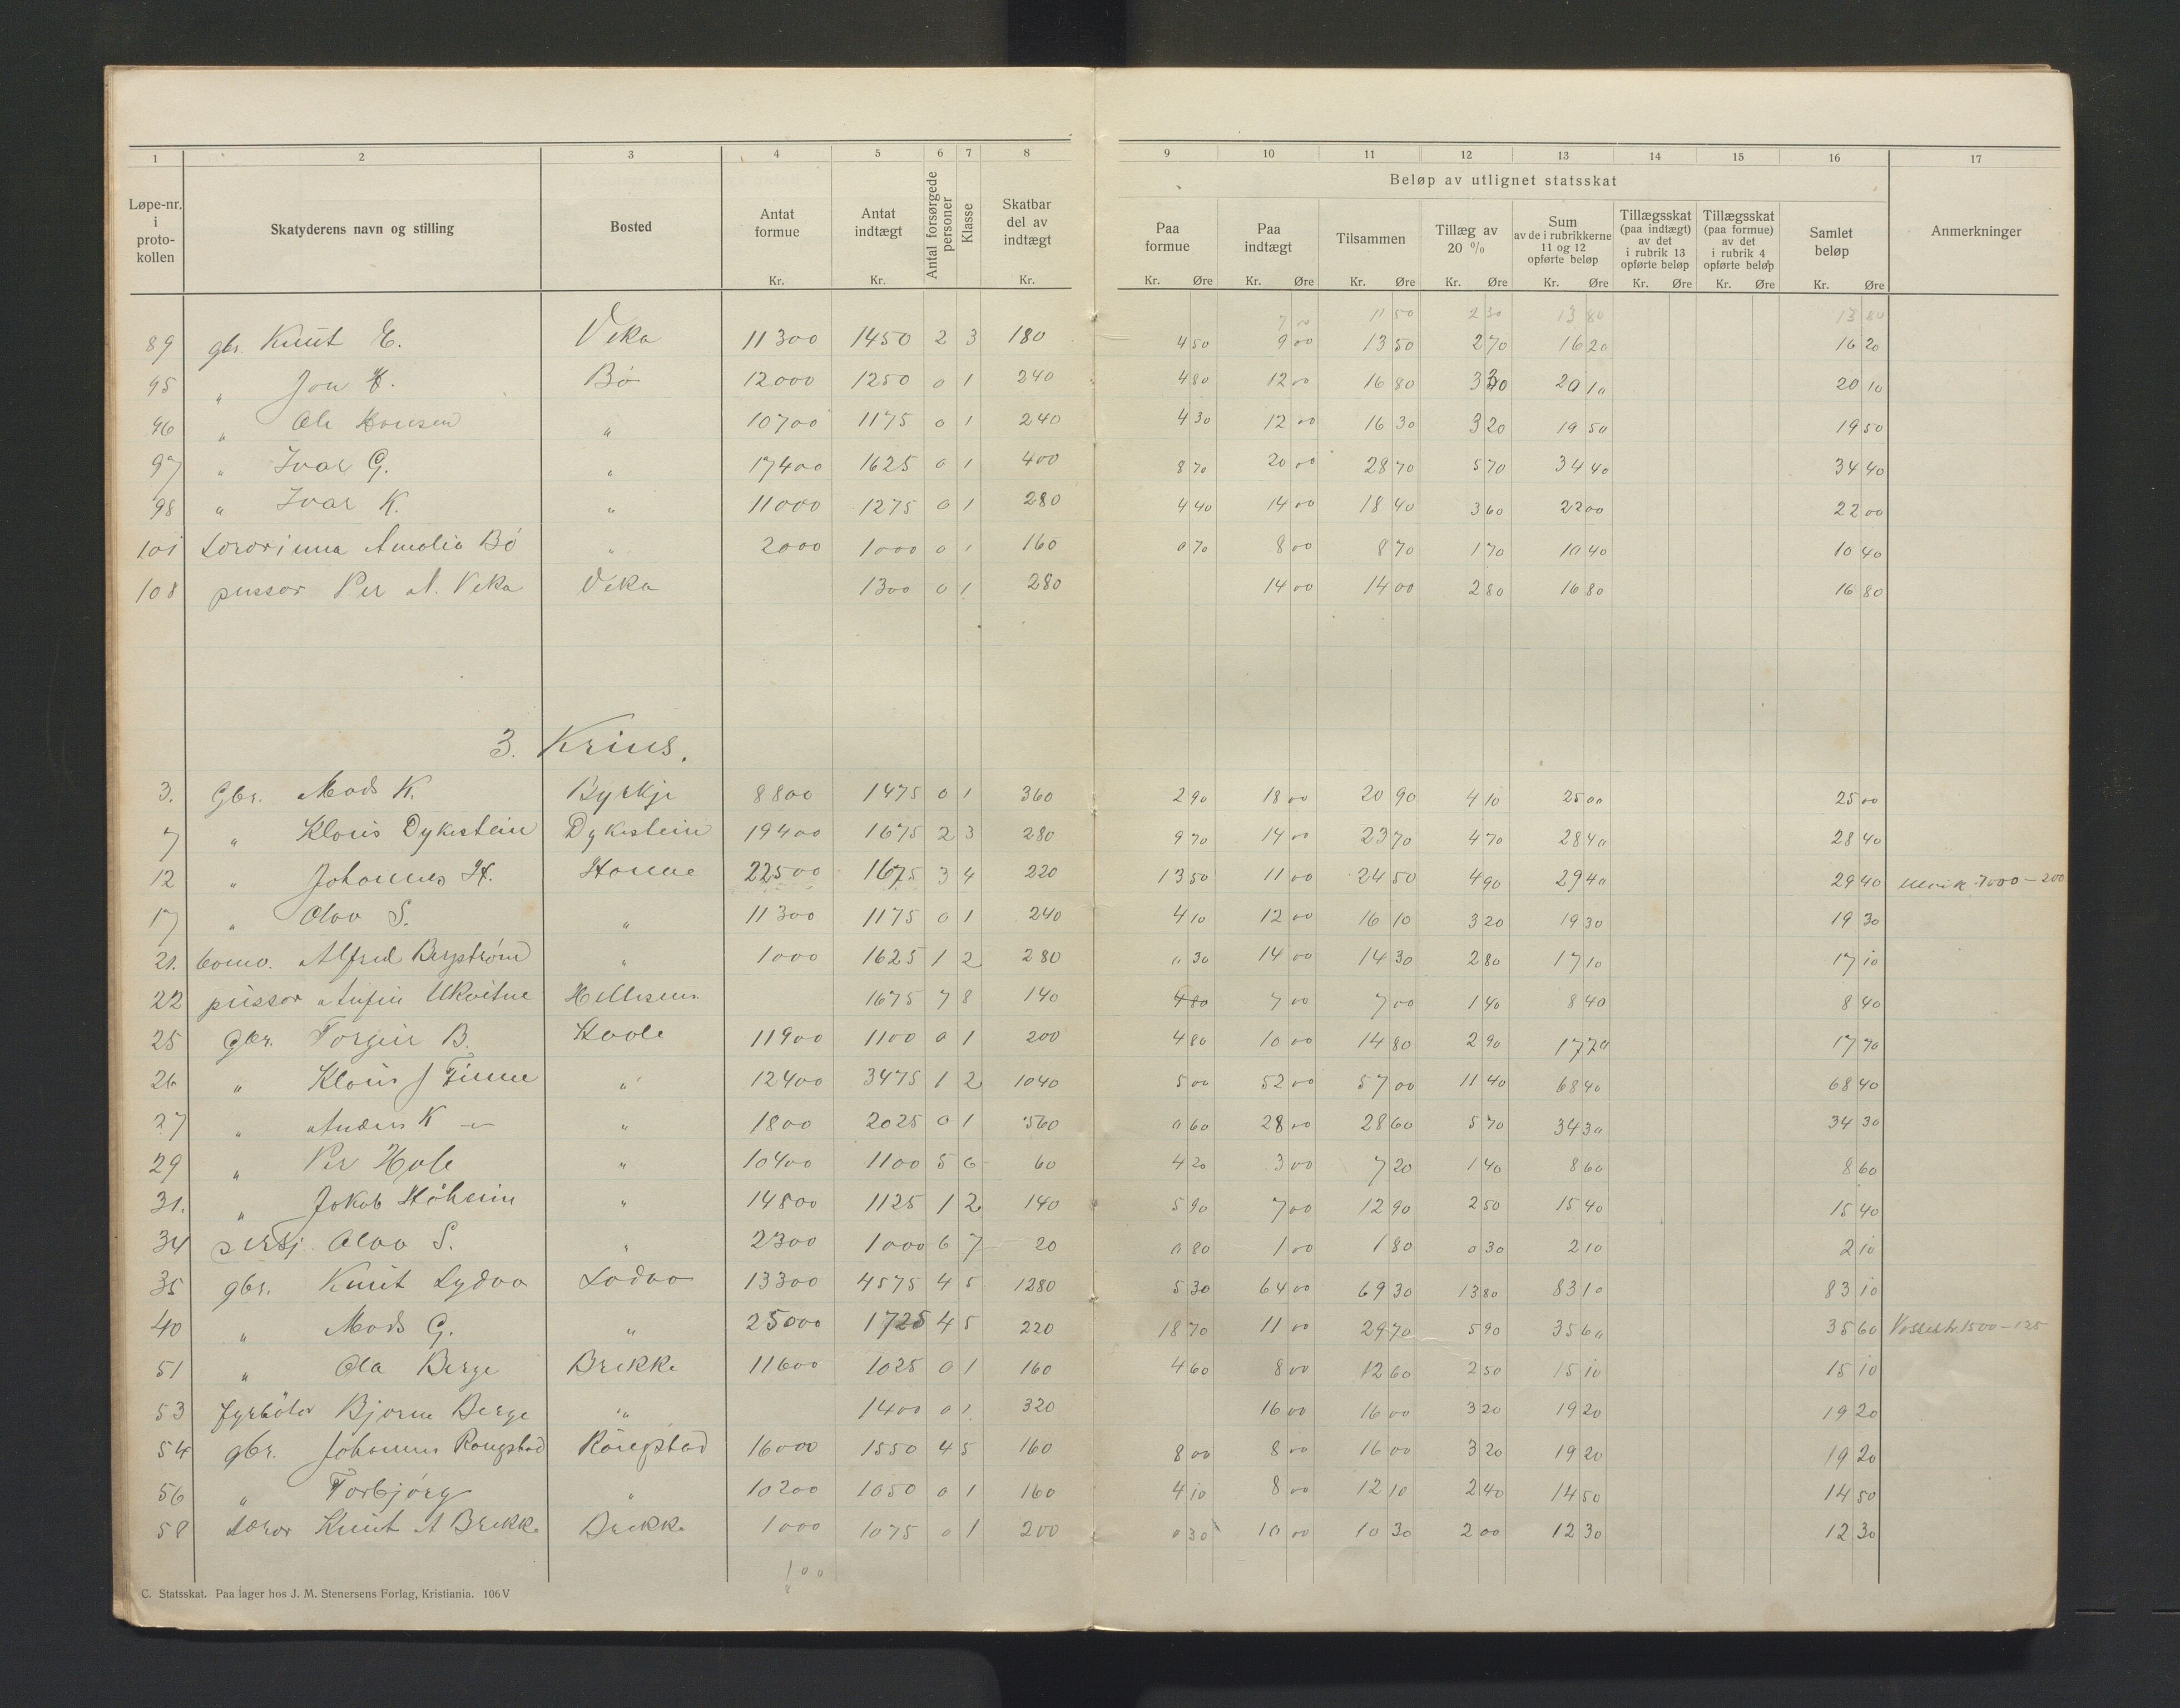 1 2 3 4 5 6 7 8 9 10 11 12 13 14 15 16 17
Beløp av utlignet statsskat
Løpe-nr. i proto-kollen Skatyderens navn og stilling Bosted Antat formue Kr. Antat indtægt Kr. Antal forsørgede personer Klasse Skatbar del av indtægt Kr. Paa formue Kr. Øre Paa indtægt Kr. Øre Tilsammen Kr. Øre Tillæg av 20 % Kr. Øre Sum av de i rubrikkerne 11 og 12 opførte beløp Kr. Øre Tillægsskat (paa indtægt) av det i rubrik 13 opførte beløp Kr. Øre Tillægsskat (paa formue) av det i rubrik 4 opførte beløp Kr. Øre Samlet beløp Kr. Øre Anmerkninger
7 00 11 50 2 30 13 80 13 80
89 gbr. Knut E. Veka 11300 1450 2 3 180 4 50 9 00 13 50 2 70 16 20 16 20
95 " Jon K. Bø 12000 1250 0 1 240 4 80 12 00 16 80 3 30 20 10 20 10
96 " Ole " 10700 1175 0 1 240 4 30 12 00 16 30 3 20 19 50 19 50
97 " Ivar G. " 17400 1625 0 1 400 8 70 20 00 28 70 5 70 34 40 34 40
98 " Ivar K. " 11000 1275 0 1 280 4 40 14 00 18 40 3 60 22 00 22 00
101 Lærarinna Amalia Bø " 2000 1000 0 1 160 0 70 8 00 8 70 1 70 10 40 10 40
108 pussar Per A. Veka Veka 1300 0 1 280 14 00 14 00 2 80 16 80 16 80
3. Krins.
3. Gbr. Mads K. Byrkje 8800 1475 0 1 360 2 90 18 00 20 90 4 10 25 00 25 00
7 " Klaus Dykestein Dykestein 19400 1675 2 3 280 9 70 14 00 23 70 4 70 28 40 28 40
12 " Johannes H. 22500 1675 3 4 220 13 50 11 00 24 50 4 90 29 40 29 40 Ulvik 7000 – 200
17 " Olav S. " 11300 1175 0 1 240 4 10 12 00 16 10 3 20 19 30 19 30
21. Alfred Bergstrøm " 1000 1625 1 2 280 0 30 14 00 14 30 2 80 17 10 17 10
22 pussar Anfin Ukvitne 1675 7 8 140 4 80 7 00 7 00 1 40 8 40 8 40
25 Gbr. Torgeir B. 11900 1100 0 1 200 4 80 10 00 14 80 2 90 17 70 17 70
26 " Klaus J Finne " 12400 3475 1 2 1040 5 00 52 00 57 00 11 40 68 40 68 40
27 " Anders K — " 1800 2025 0 1 560 0 60 28 00 28 60 5 70 34 30 34 30
29 " Per Hole " 10400 1100 5 6 60 4 20 3 00 7 20 1 40 8 60 8 60
31. " Jakob " 14800 1125 1 2 140 5 90 7 00 12 90 2 50 15 40 15 40
34 Olav S. " 2300 1000 6 7 20 0 80 1 00 1 80 0 30 2 10 2 10
35 gbr. Knut Lydva 13300 4575 4 5 1280 5 30 64 00 69 30 13 80 83 10 83 10
40 " Mads G. " 25000 1725 4 5 220 18 70 11 00 29 70 5 90 35 60 35 60 Vossestr. 1500 – 125
51 " Ola Berge Brekke 11600 1025 0 1 160 4 60 8 00 12 60 2 50 15 10 15 10
53 fyrbøter Bjarne Berge " 1400 0 1 320 16 00 16 00 3 20 19 20 19 20
54 gbr. Johannes Rongstad Rongstad 16000 1550 4 5 160 8 00 8 00 16 00 3 20 19 20 19 20
56 " Torbjørg " 10200 1050 0 1 160 4 10 8 00 12 10 2 40 14 50 14 50
58 Lærar Knut A Brekke Brekke 1000 1075 0 1 200 0 30 10 00 10 30 2 00 12 30 12 30
C. Statsskat. Paa lager hos J. M. Stenersens Forlag, Kristiania. 106 V